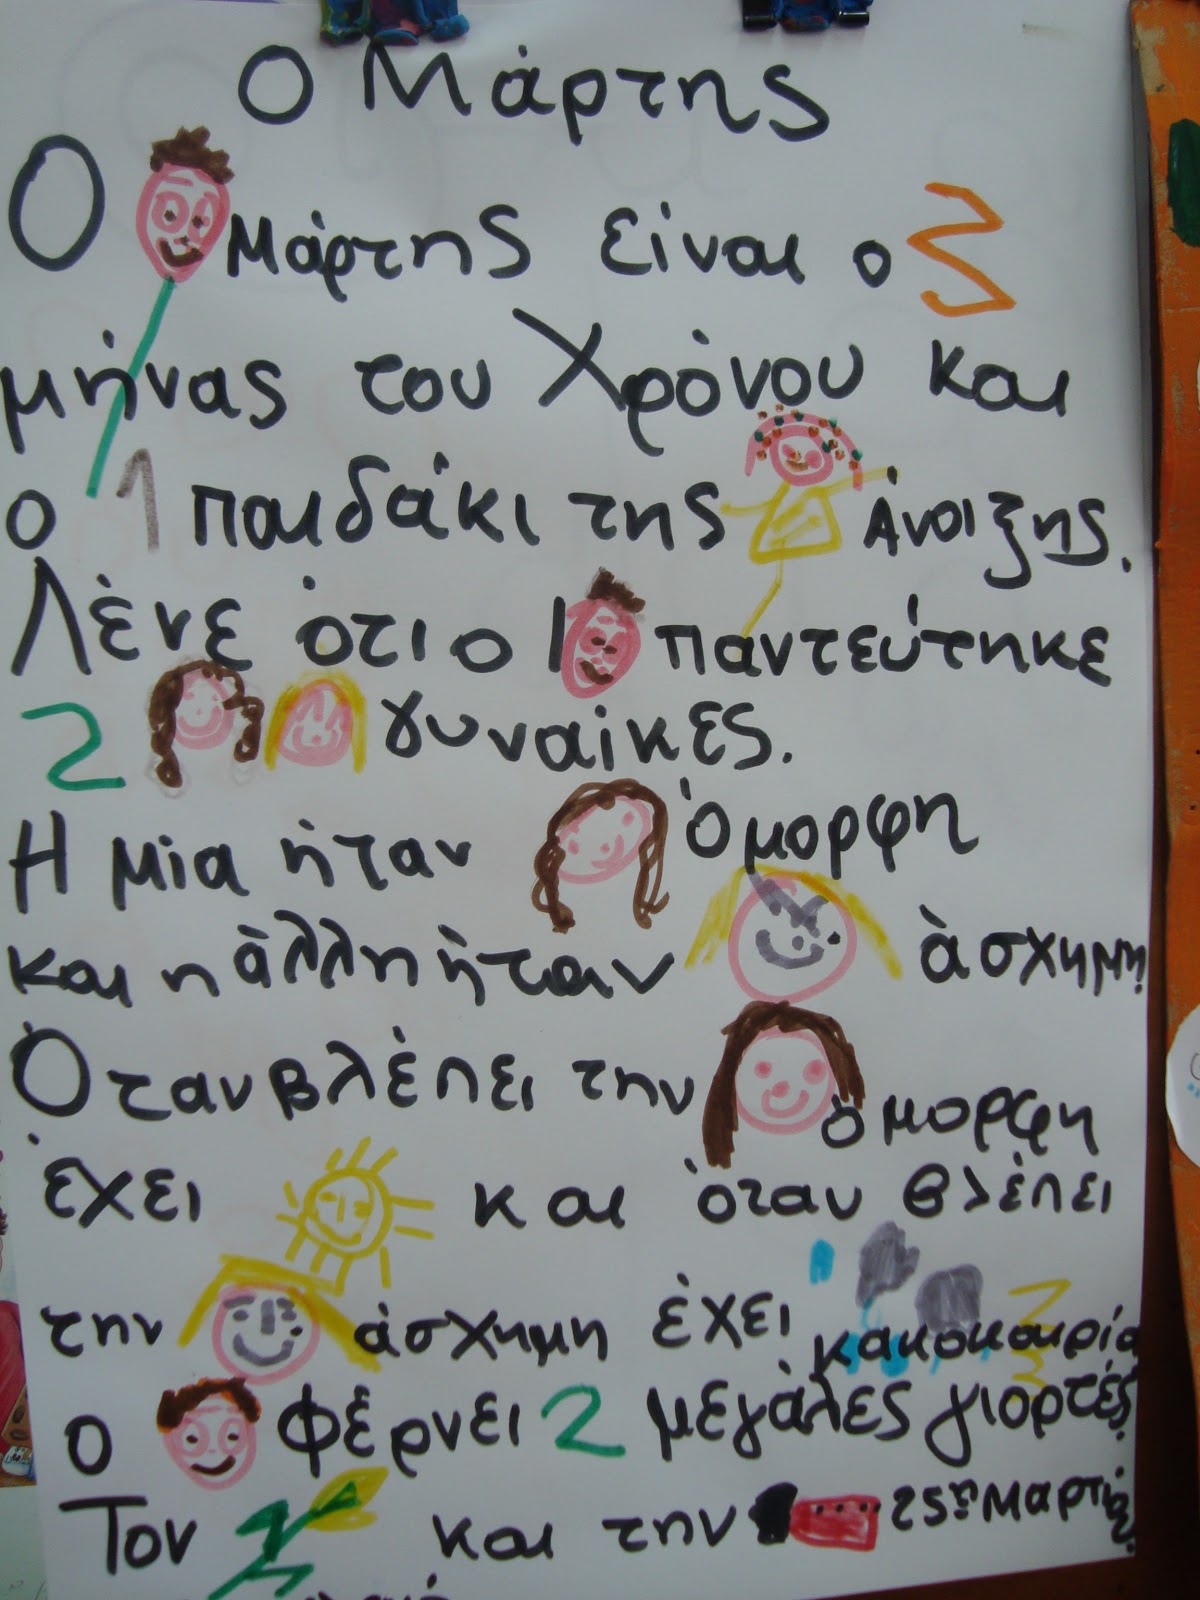 Ο Μάρτης
Ο Μάρτης είναι ο 3
μήνας του Χρόνου και
ο 1 παιδάκι της Άνοιξης.
Λένε ότι ο παντεύτηκε
2 γυναίκες.
Η μία ήταν Όμορφη
και η άλλη ήταν άσχημη
Όταν βλέπει την όμορφη
έχει και όταν βλέπει
την άσχημη έχει κακοκαιρία
ο φέρνει 2 μεγάλες γιορτές
Τον και την 25η Μαρτίου